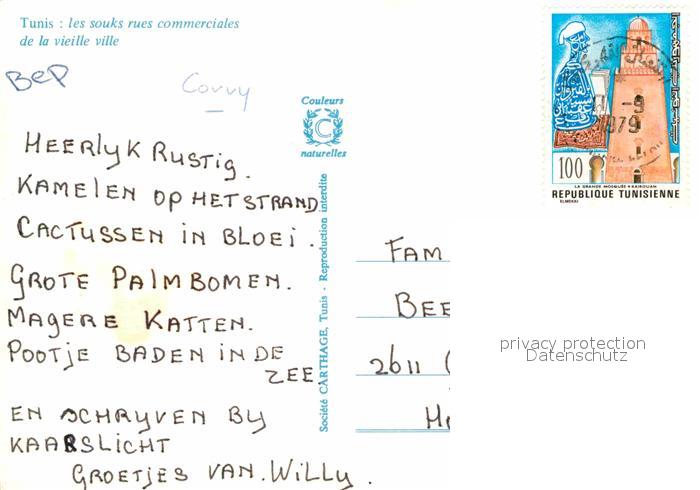 Tunis : les souks rues commerciales
de la vieille ville
BeP
Couleurs
C
naturelles
HEERLYK RUSTIG.
KAMELEN OP HET STRAND
CACTUSSEN IN BLOEI.
GROTE PALMBOMEN.
MAGERE KATTEN.
POOTJE BADEN IN DE
ZEE
EN SCHRYVEN BY
KAARSLICHT
GROETJES VAN. WILLY.
Société CARTHAGE, Tunis - Reproduction interdite
100
LA GRANDE MOSQUÉE • KAIROUAN
REPUBLIQUE TUNISIENNE
ELMEKKI
-9
1979
FAM
BEE
2611
H
privacy protection
Datenschutz